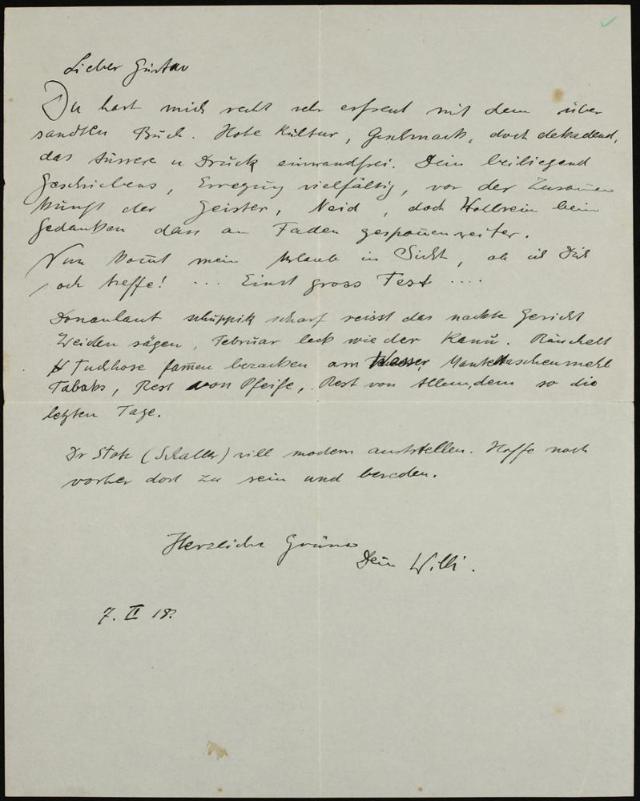 Lieber Gustav
Du hast mich recht sehr erfreut mit dem über
sandten Buch. Hohe Kultur, Geschmack, doch dekadend,
das äussere u Druck einwandfrei. Dein beiliegend
Geschiebens, Erregung vielfältig, vor der Zusammen
kunft der Geister, Neid, doch Wollsein beim
Gedanken dass am Faden gesponnen weiter.
Nun kommt mein Urlaub in Sicht, ob ich Dich
noch treffe! ... Einst gross Fest ....
Donaulaut schuppik scharf reisst das nackte Gesicht
Weiden sägen, Februar leck wie der Kanu. Räuschelt
Tuchhose am Wasser, Manteltaschenmehl
Tabaks, Rest von Pfeife, Rest von Allem, dem so die
letzten Tage.
Dr (Schaller) will modern ausstellen. Hoffe noch
vorher dort zu sein und bereden.
Herzliche Grüsse
Dein Willi.
7. II 18.